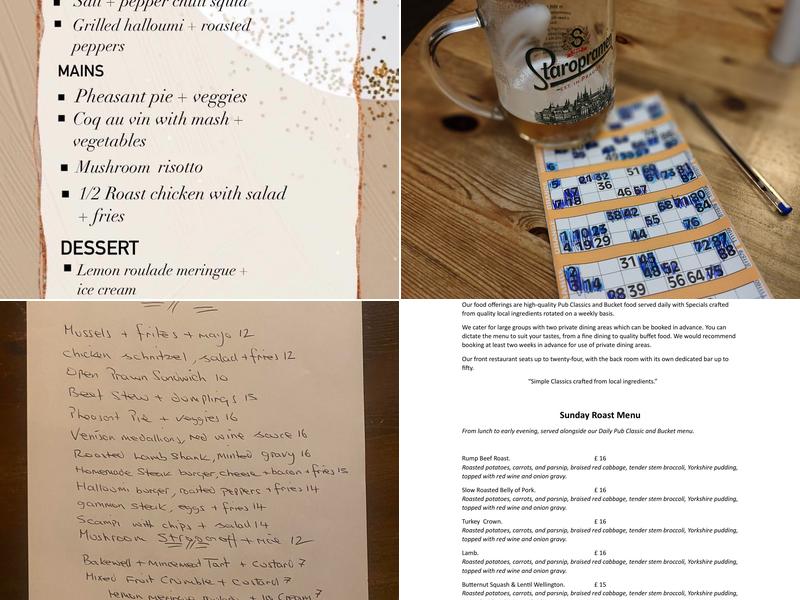 Salt + pepper chilli squid
Grilled halloumi + roasted
peppers
MAINS
Pheasant pie + veggies
Coq au vin with mash +
vegetables
Mushroom risotto
1/2 Roast chicken with salad
+ fries
DESSERT
Lemon roulade meringue +
ice cream
Staropramen
EST. IN PRAGUE
Mussels + frites + mayo 12
chicken schnitzel, salad + fries 12
Open Prawn Sandwich 10
Beef Stew + dumplings 15
Pheasant Pie + veggies 16
Venison medallions, red wine sauce 16
Roasted Lamb Shank, minted gravy 16
Homemade Steak burger, cheese + bacon + fries 15
Halloumi burger, roasted peppers + fries 14
gammon steak, eggs + fries 14
Scampi with chips + salad 14
Mushroom Stroganoff + rice 12
Bakewell + mincemeat Tart + custard 7
Mixed Fruit Crumble + custard 7
Lemon meringue roulade + Ice Cream 7
Our food offerings are high-quality Pub Classics and Bucket food served daily with Specials crafted
from quality local ingredients rotated on a weekly basis.
We cater for large groups with two private dining areas which can be booked in advance. You can
dictate the menu to suit your tastes, from a fine dining to quality buffet food. We would recommend
booking at least two weeks in advance for use of private dining areas.
Our front restaurant seats up to twenty-four, with the back room with its own dedicated bar up to
fifty.
"Simple Classics crafted from local ingredients."
Sunday Roast Menu
From lunch to early evening, served alongside our Daily Pub Classic and Bucket menu.
Rump Beef Roast. £ 16
Roasted potatoes, carrots, and parsnip, braised red cabbage, tender stem broccoli, Yorkshire pudding,
topped with red wine and onion gravy.
Slow Roasted Belly of Pork. £ 16
Roasted potatoes, carrots, and parsnip, braised red cabbage, tender stem broccoli, Yorkshire pudding,
topped with red wine and onion gravy.
Turkey Crown. £ 16
Roasted potatoes, carrots, and parsnip, braised red cabbage, tender stem broccoli, Yorkshire pudding,
topped with red wine and onion gravy.
Lamb. £ 16
Roasted potatoes, carrots, and parsnip, braised red cabbage, tender stem broccoli, Yorkshire pudding,
topped with red wine and onion gravy.
Butternut Squash & Lentil Wellington. £ 15
Roasted potatoes, carrots, and parsnip, braised red cabbage, tender stem broccoli, Yorkshire pudding,